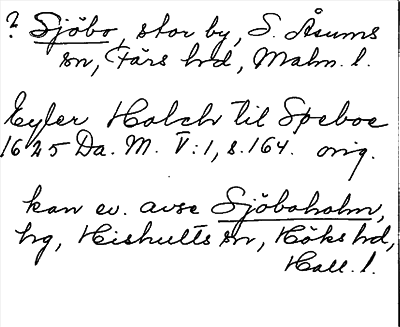 ? Sjöbo, stor by, S. Åsums
sn, Färs hd, Malm. l.
Eyler Holch til Speboe
1625 Da. M. V:1, s. 164. orig.
kan ev. avse Sjöboholm,
hg, Hishults sn, Höks hd,
Hall. l.